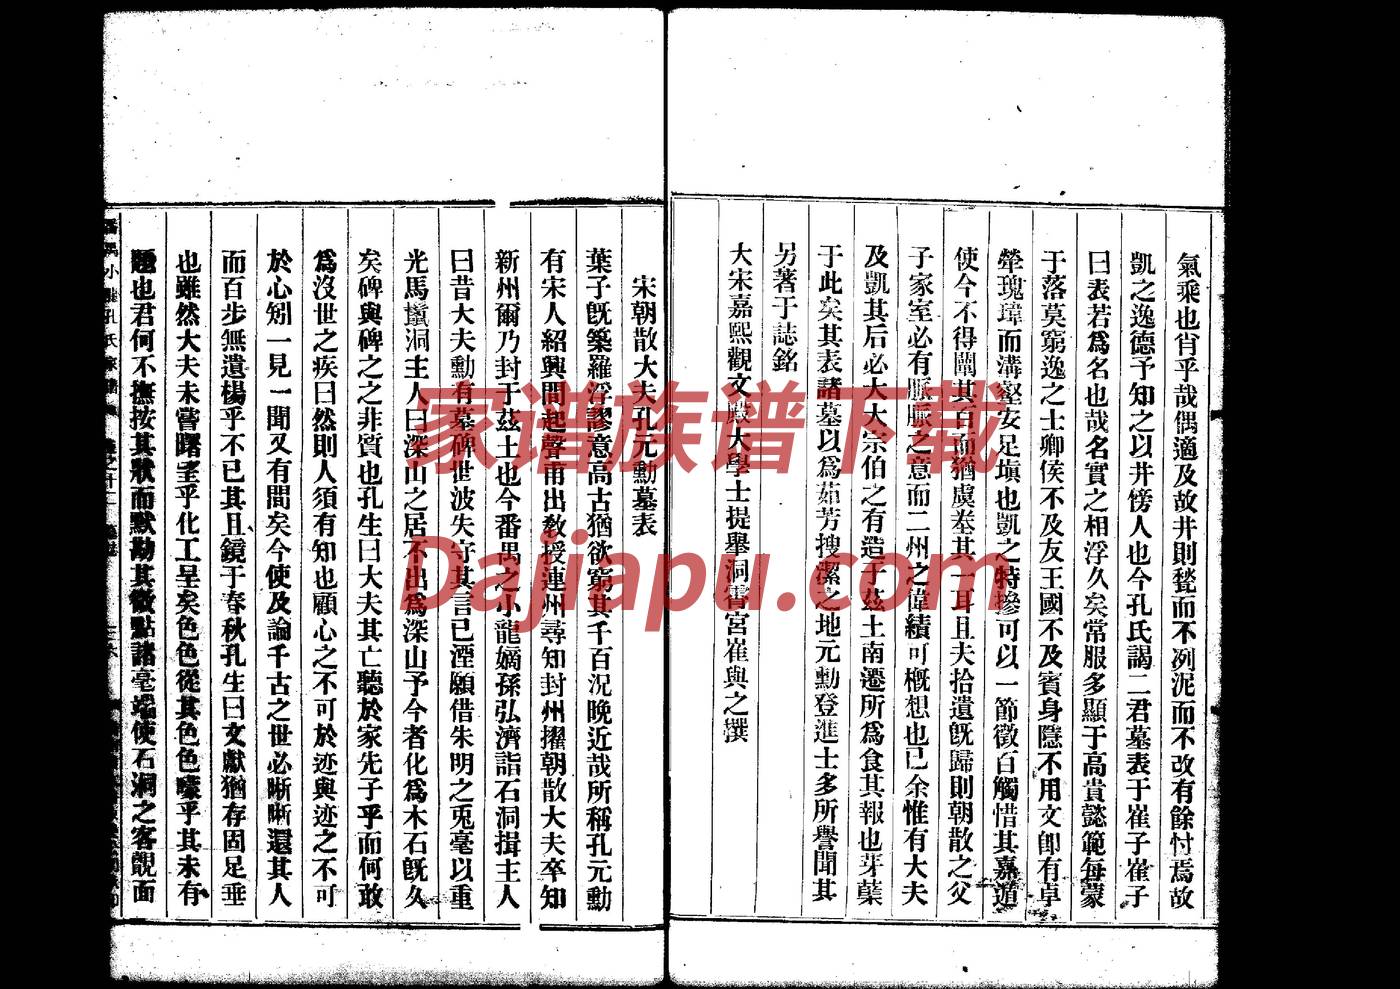 氣乘也肖乎哉偶適及故井則甃而不冽泥而不改有餘忖焉故
凱之逸德予知之以井傍人也今孔氏謁二君墓表于崔子崔子
曰表若為名也哉名實之相浮久矣常服多顯于高貴懿範每蒙
于落莫窮逸之士卿侯不及友王國不及賓身隱不用文卽有卓
犖瑰瑋而溝壑安足塡也凱之特摻可以一節徵百觸惜其嘉遁
使今不得闡其百而猶虞拳其一耳且夫拾遺旣歸則朝散之父
子家室必有脈脈之意而二州之偉績可槪想也已余惟有大夫
及凱其后必大大宗伯之有造于茲土南遷所為食其報也芽蘗
于此矣其表諸墓以為茹芳搜潔之地元勳登進士多所譽聞其
另著于誌銘
大宋嘉熙觀文殿大學士提舉洞霄宮崔與之撰
宋朝散大夫孔元勳墓表
葉子旣築羅浮謬意高古猶欲窮其千百況晚近哉所稱孔元勳
有宋人紹興間起聲甫出敎授連州尋知封州擢朝散大夫卒知
新州爾乃封于茲土也今番禺之小龍嫡孫弘濟詣石洞揖主人
曰昔大夫勳有墓碑世波失守其言已湮願借朱明之兎毫以重
光馬鬛洞主人曰深山之居不出為深山予今者化為木石旣久
矣碑與碑之之非質也孔生曰大夫其亡聽於家先子乎而何敢
為沒世之疾曰然則人須有知也顧心之不可於迹與迹之不可
於心矧一見一聞又有間矣今使及論千古之世必晣晣還其人
而百步無遺楊乎不已其且鏡于春秋孔生曰文獻猶存固足垂
也雖然大夫未嘗曙望乎化工呈矣色色從其色色噱乎其未有
題也君何不撫按其狀而默勘其徵點諸毫端使石洞之客覩面
家谱族谱下载
Dajiapu.com